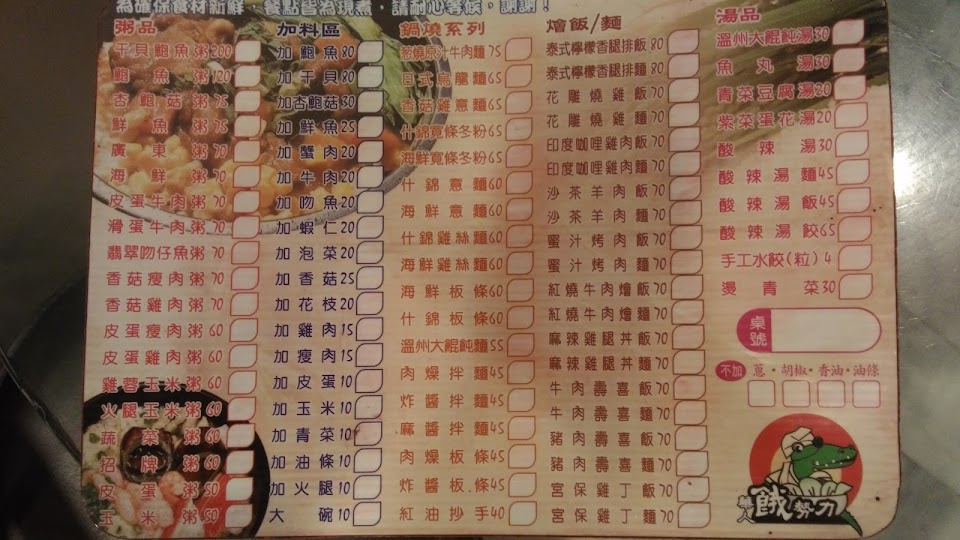 為確保食材新鮮，餐點皆為現煮，請耐心等候，謝謝！
粥品
干貝鮑魚粥200
鮑魚粥120
杏鮑菇粥75
鮮魚粥75
廣東粥70
海鮮粥70
皮蛋牛肉粥70
滑蛋牛肉粥70
翡翠吻仔魚粥70
香菇瘦肉粥70
香菇雞肉粥70
皮蛋瘦肉粥60
皮蛋雞肉粥60
雞蓉玉米粥60
火腿玉米粥60
蔬菜粥60
招牌粥60
皮蛋粥50
玉米粥50
加料區
加鮑魚80
加干貝80
加杏鮑菇30
加鮮魚25
加蟹肉20
加牛肉20
加吻魚20
加蝦仁20
加泡菜20
加香菇25
加花枝20
加雞肉15
加瘦肉15
加皮蛋10
加玉米10
加青菜10
加油條10
加火腿10
大碗10
鍋燒系列
蔥燒原汁牛肉麵75
日式烏龍麵65
香菇雞意麵65
什錦寬條冬粉65
海鮮寬條冬粉65
什錦意麵60
海鮮意麵60
什錦雞絲麵60
海鮮雞絲麵60
海鮮板條60
什錦板條60
溫州大餛飩麵55
肉燥拌麵45
炸醬拌麵45
麻醬拌麵45
肉燥板條45
炸醬板.條45
紅油抄手40
燴飯/麵
泰式檸檬香腿排飯80
泰式檸檬香腿排麵80
花雕燒雞飯70
花雕燒雞麵70
印度咖哩雞肉飯70
印度咖哩雞肉麵70
沙茶羊肉飯70
沙茶羊肉麵70
蜜汁烤肉飯70
蜜汁烤肉麵70
紅燒牛肉燴飯70
紅燒牛肉燴麵70
麻辣雞腿丼飯70
麻辣雞腿丼麵70
牛肉壽喜飯70
牛肉壽喜麵70
豬肉壽喜飯70
豬肉壽喜麵70
宮保雞丁飯70
宮保雞丁麵70
湯品
溫州大餛飩湯30
魚丸湯30
青菜豆腐湯20
紫菜蛋花湯20
酸辣湯30
酸辣湯麵45
酸辣湯飯45
酸辣湯餃65
手工水餃(粒)4
燙青菜30
桌號
不加 蔥·胡椒·香油·油條
餓勢力